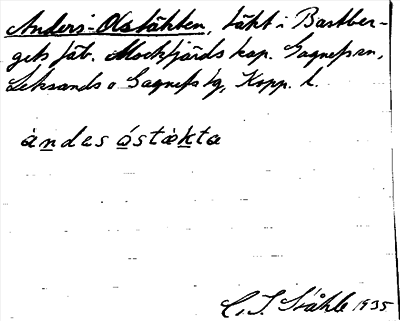 Anders-Olstäkten, täkt i Bastber-
gets fäb. Mockfjärds kap. Gagnefs sn,
Leksands o Gagnefs tg, Kopp. l.
àndas óstàkta
C. I. Ståhle 1935